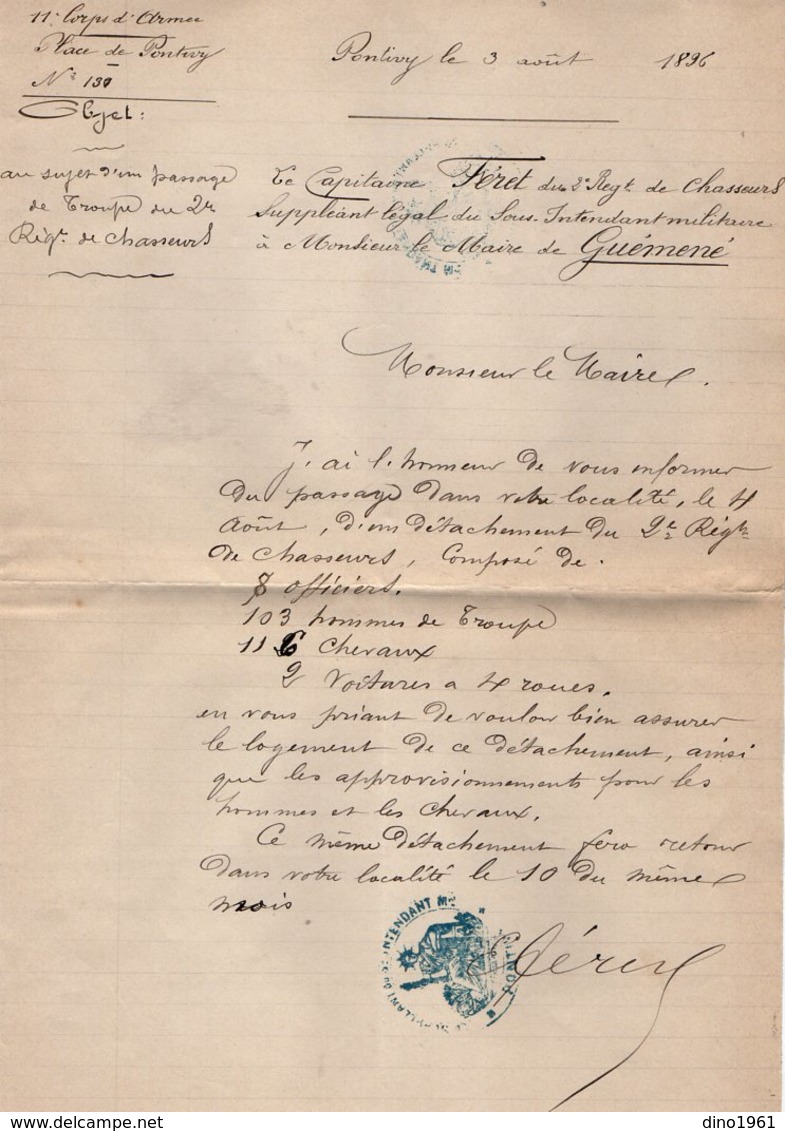 11e Corps d'Armée
Place de Pontivy
No 137
Objet :
au sujet d'un passage
de Troupe du 2e
Régt. de chasseurs
Pontivy le 3 août 1896
Le Capitaine Féret du 2e Regt. de Chasseurs
Suppléant légal du Sous-Intendant militaire
à Monsieur le Maire de Guémené
Monsieur le Maire.
J'ai l'honneur de vous informer
du passage dans votre localité, le 4
Août, d'un détachement du 2e Régt
de chasseurs, composé de.
8 officiers.
103 hommes de Troupe
116 chevaux
2 Voitures a 4 roues.
en vous priant de vouloir bien assurer
le logement de ce détachement, ainsi
que les approvisionnements pour les
hommes et les chevaux.
Ce même détachement fera retour
dans votre localité le 10 du même
mois
Féret
INTENDANT
PONTIVY
dino1961